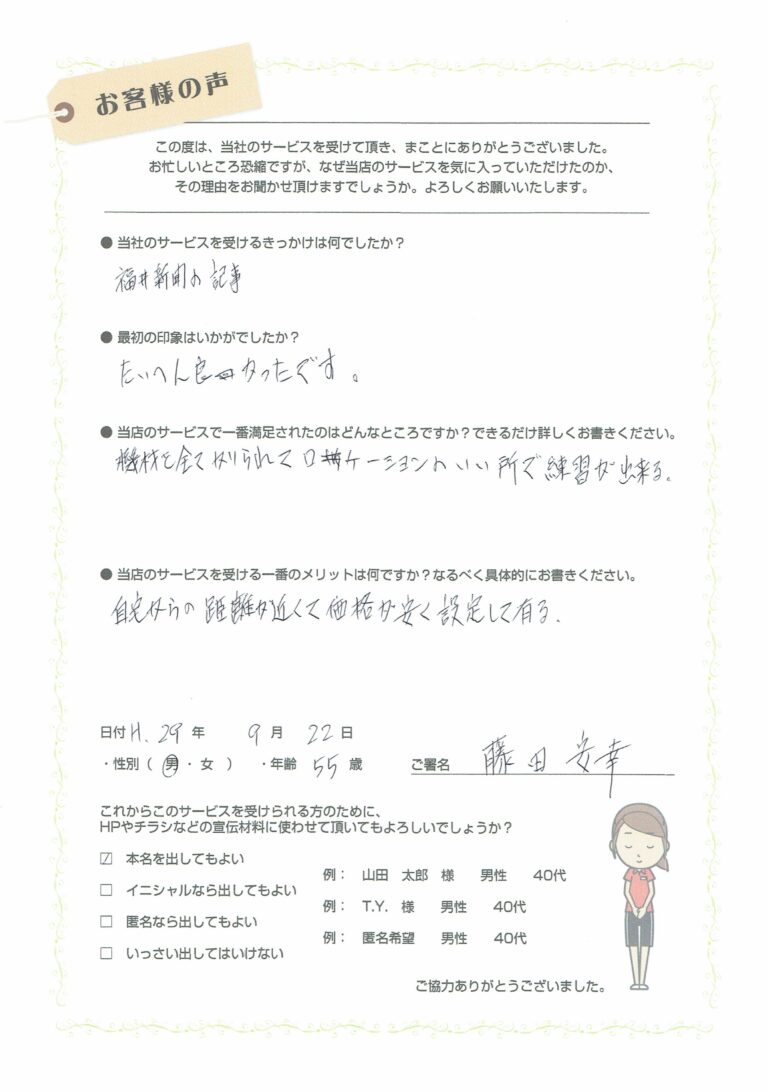 お客様の声
この度は、当社のサービスを受けて頂き、まことにありがとうございました。
お忙しいところ恐縮ですが、なぜ当店のサービスを気に入っていただけたのか、
その理由をお聞かせ頂けますでしょうか。よろしくお願いいたします。
● 当社のサービスを受けるきっかけは何でしたか？
福井新聞の記事
● 最初の印象はいかがでしたか？
たいへん良かったです。
● 当店のサービスで一番満足されたのはどんなところですか？できるだけ詳しくお書きください。
機材を全てかりられてロケーションのいい所で練習が出来る。
● 当店のサービスを受ける一番のメリットは何ですか？なるべく具体的にお書きください。
自宅からの距離が近くて価格が安く設定して有る。
日付 H. 29 年 9 月 22 日
・性別 ( 男 ・ 女 ) ・年齢 55 歳 ご署名 藤田 安幸
これからこのサービスを受けられる方のために、
HPやチラシなどの宣伝材料に使わせて頂いてもよろしいでしょうか？
☑ 本名を出してもよい 例： 山田 太郎 様 男性 40代
□ イニシャルなら出してもよい 例： T.Y. 様 男性 40代
□ 匿名なら出してもよい 例： 匿名希望 男性 40代
□ いっさい出してはいけない
ご協力ありがとうございました。